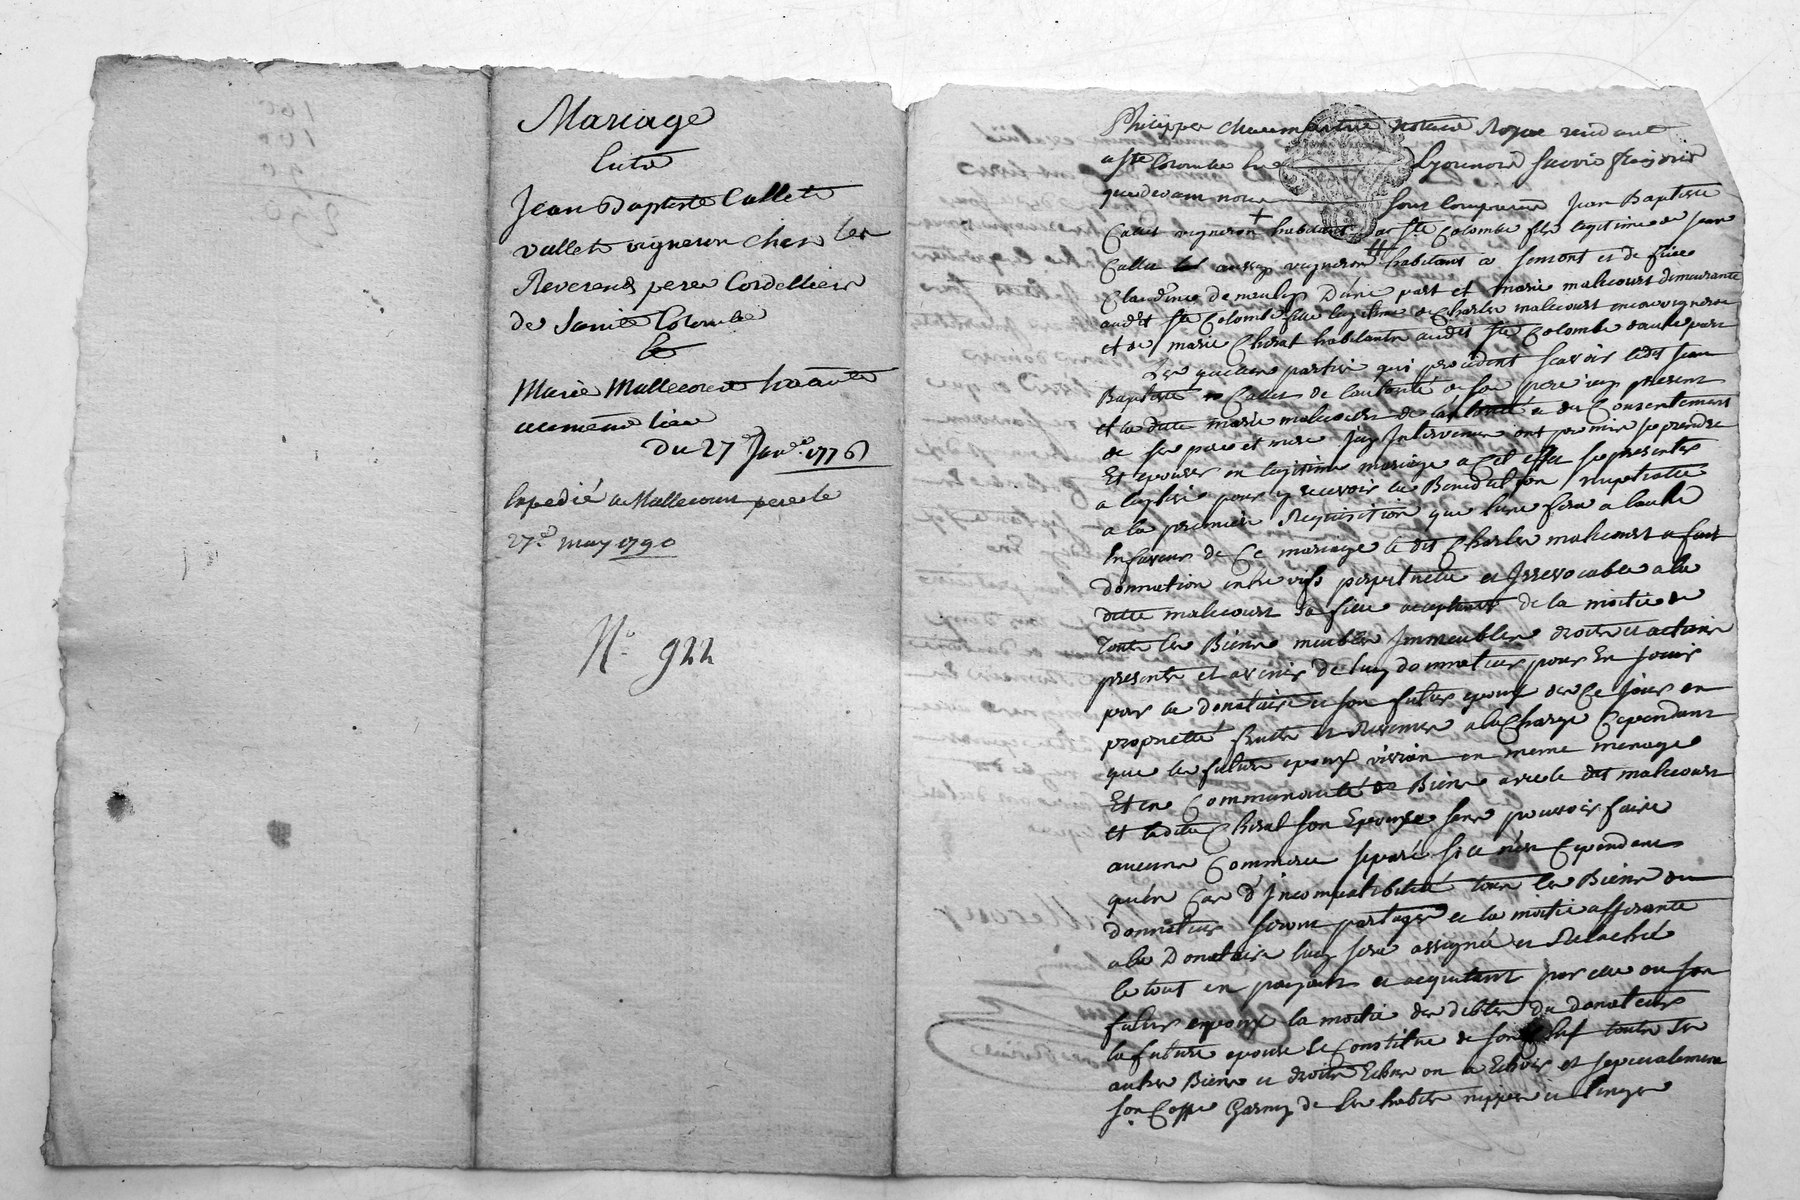 Mariage
Entre
Jean Baptiste Callet
vallet vigneron chez les
Reverends peres Cordelliers
de Sainte Colombe
Et
Marie Mallecourt habitante
au meme lieu
Du 27e Janer. 1776
Expedié a Mallecourt pere le
27e. may 1790
N° 922
Philippe Chaumartin notaire Royal residant
a Ste Colombe en Lyonnois savoir faisons
que devant nous sous comparurent Jean Baptiste
Callet vigneron habitant a Ste Colombe fils legitime de Jean
Callet aussy vigneron habitant a Semont et de feue
Claudine de meulis D'une part et marie malicourt demeurante
audit Ste Colombe fille legitime de Charles malicourt vigneron
et de marie Chirat habitants audit Ste Colombe d'autre part
Les quelles parties qui procedent scavoir ledit Jean
Baptiste Callet de l'autorité de son pere icy present
et la ditte marie malicourt de l'autorité et du Consentement
de ses pere et mere icy Intervenus ont promis se prendre
Et epouser en legitime mariage a cet effet se presenter
a l'eglise pour y recevoir la Benediction nuptiale
a la premiere Requisition que l'une fera a l'autre
En faveur de Ce mariage le dit Charles malicourt a fait
donnation entre vifs perpetuelle et Irrevocable a la
ditte malicourt sa fille acceptante de la moitié de
toutes les Biens meubles Immeubles droits et actions
presents et avenir de luy donnateur pour En Jouir
par la donataire et son futur epoux des Ce Jour en
propriette fruits et Revenus a la Charge Cependant
que les futurs epoux vivront en meme menage
Et en Communauté de Biens avec le dit malicourt
et ladite Chirat son Epouse sans pouvoir faire
aucune Commerce separé si ce n'est Cependant
qu'en Cas d'Incompatibilité tous les Biens du
donnateur seront partages et la moitié afferante
a la Donataire luy sera assignée et Relachée
le tout en payant et acquitant par elle ou son
futur epoux la moitié des debtes du donateur
la future epouse se Constitue de son Chef toutes ses
autres Biens et droits Echus ou a Echoir et specialement
son Coffre Garny de ses habits nippes et linges